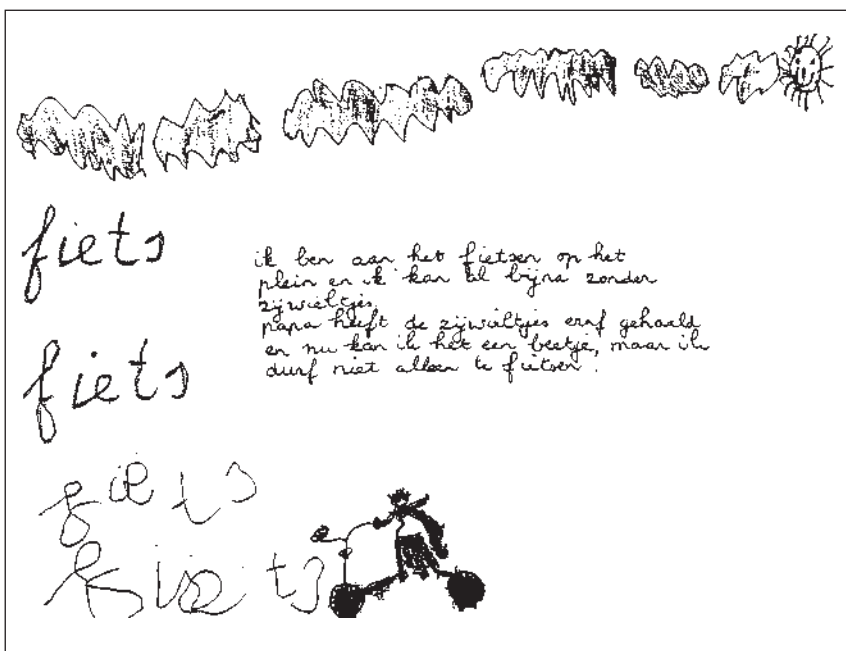 fiets
ik ben aan het fietsen op het
plein en ik kan al bijna zonder
zijwieltjes.
papa heeft de zijwieltjes eraf gehaald
en nu kan ik het een beetje, maar ik
durf niet alleen te fietsen.
fiets
fiets
fiets